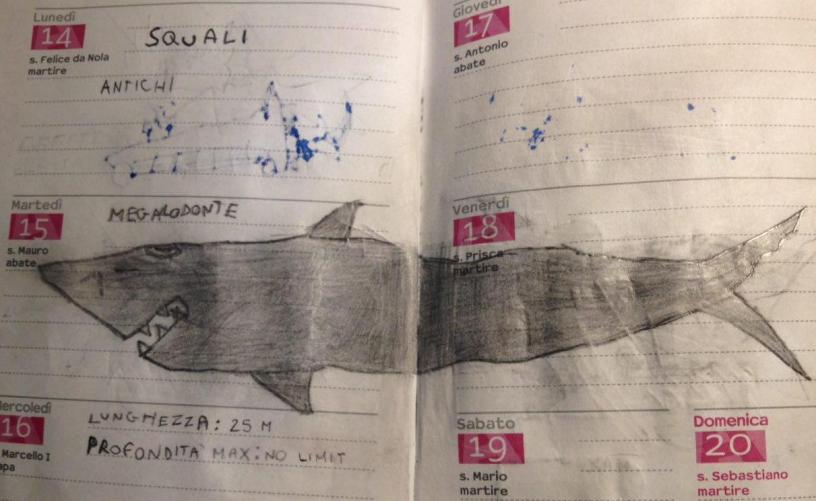 Lunedì
14
s. Felice da Nola
martire
SQUALI
ANTICHI
Martedì
15
s. Mauro
abate
MEGALODONTE
Mercoledì
16
Marcello I
papa
LUNGHEZZA: 25 M
PROFONDITA' MAX: NO LIMIT
Giovedì
17
s. Antonio
abate
Venerdì
18
s. Prisca
martire
Sabato
19
s. Mario
martire
Domenica
20
s. Sebastiano
martire